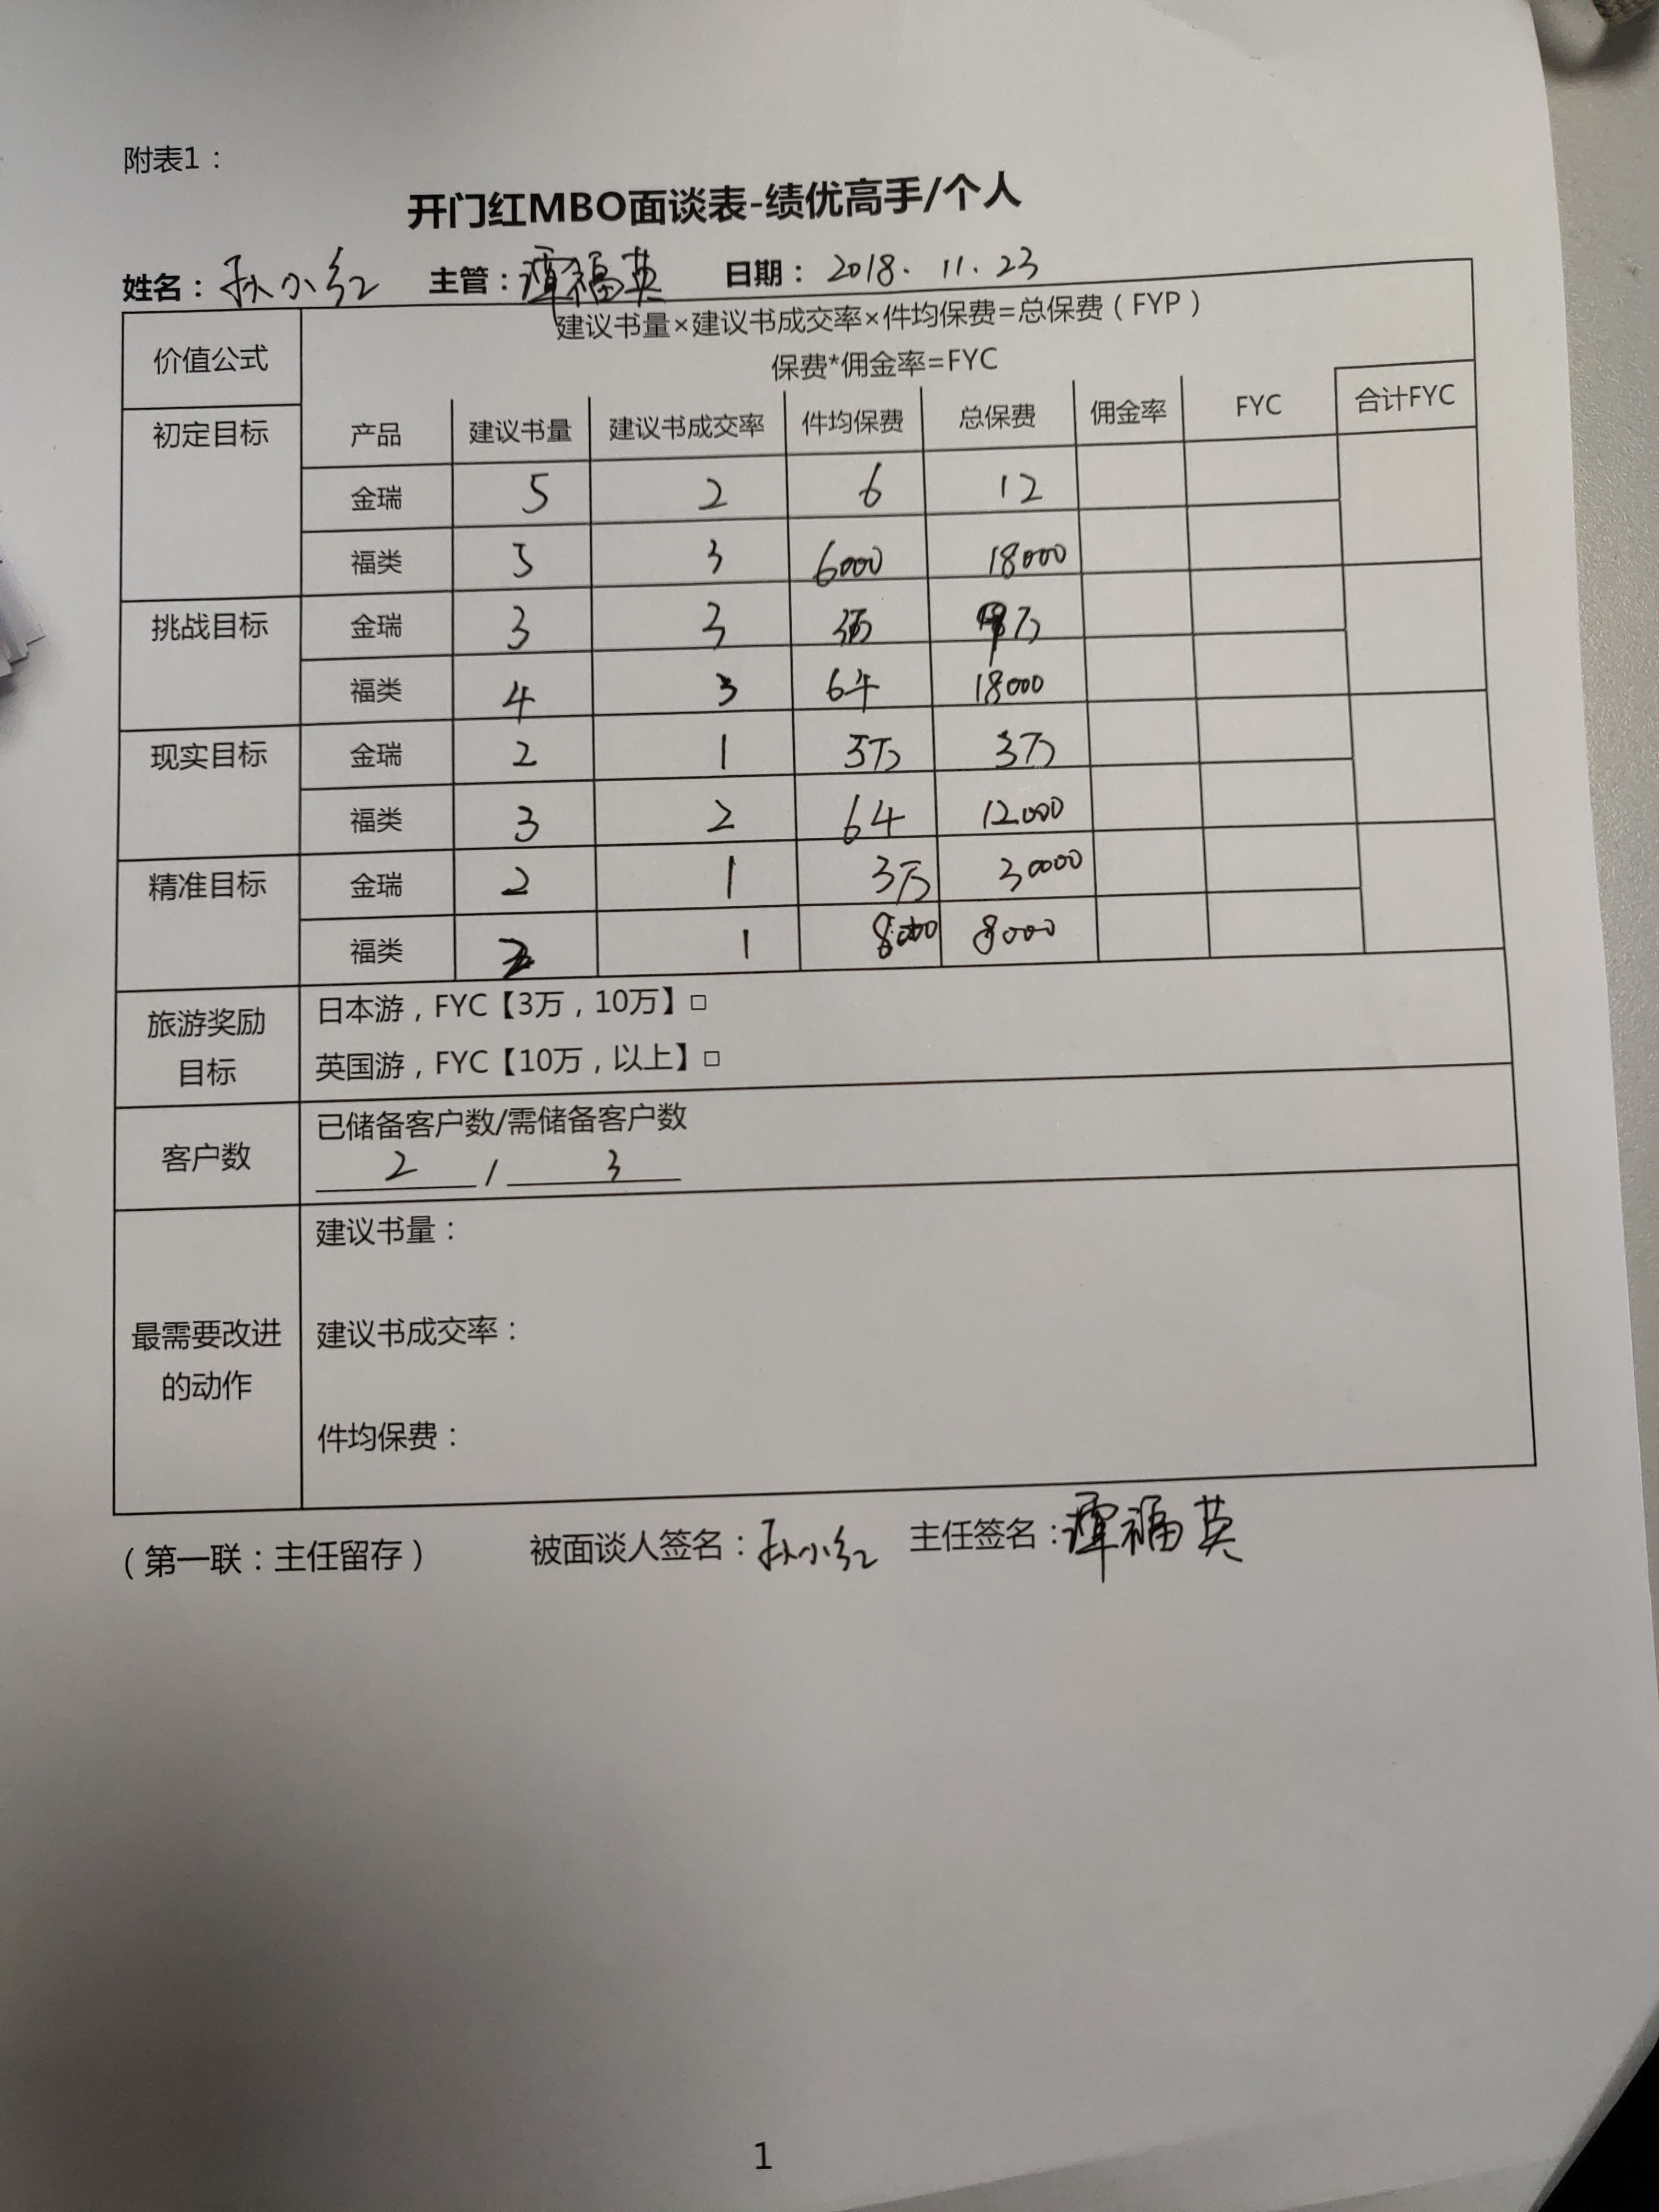 附表1：
开门红MBO面谈表-绩优高手/个人
姓名：孙小红 主管：谭福英 日期：2018.11.23
价值公式 建议书量×建议书成交率×件均保费=总保费（FYP）
保费*佣金率=FYC
初定目标 产品 建议书量 建议书成交率 件均保费 总保费 佣金率 FYC 合计FYC
金瑞 5 2 6 12
福类 5 3 6000 18000
挑战目标 金瑞 3 3 3万
福类 4 3 6千 18000
现实目标 金瑞 2 1 3万 3万
福类 3 2 6千 12000
精准目标 金瑞 2 1 3万 30000
福类 2 1 8000 8000
旅游奖励目标 日本游，FYC【3万，10万】□
英国游，FYC【10万，以上】□
客户数 已储备客户数/需储备客户数
2 / 3
最需要改进的动作 建议书量：
建议书成交率：
件均保费：
（第一联：主任留存） 被面谈人签名：孙小红 主任签名：谭福英
1